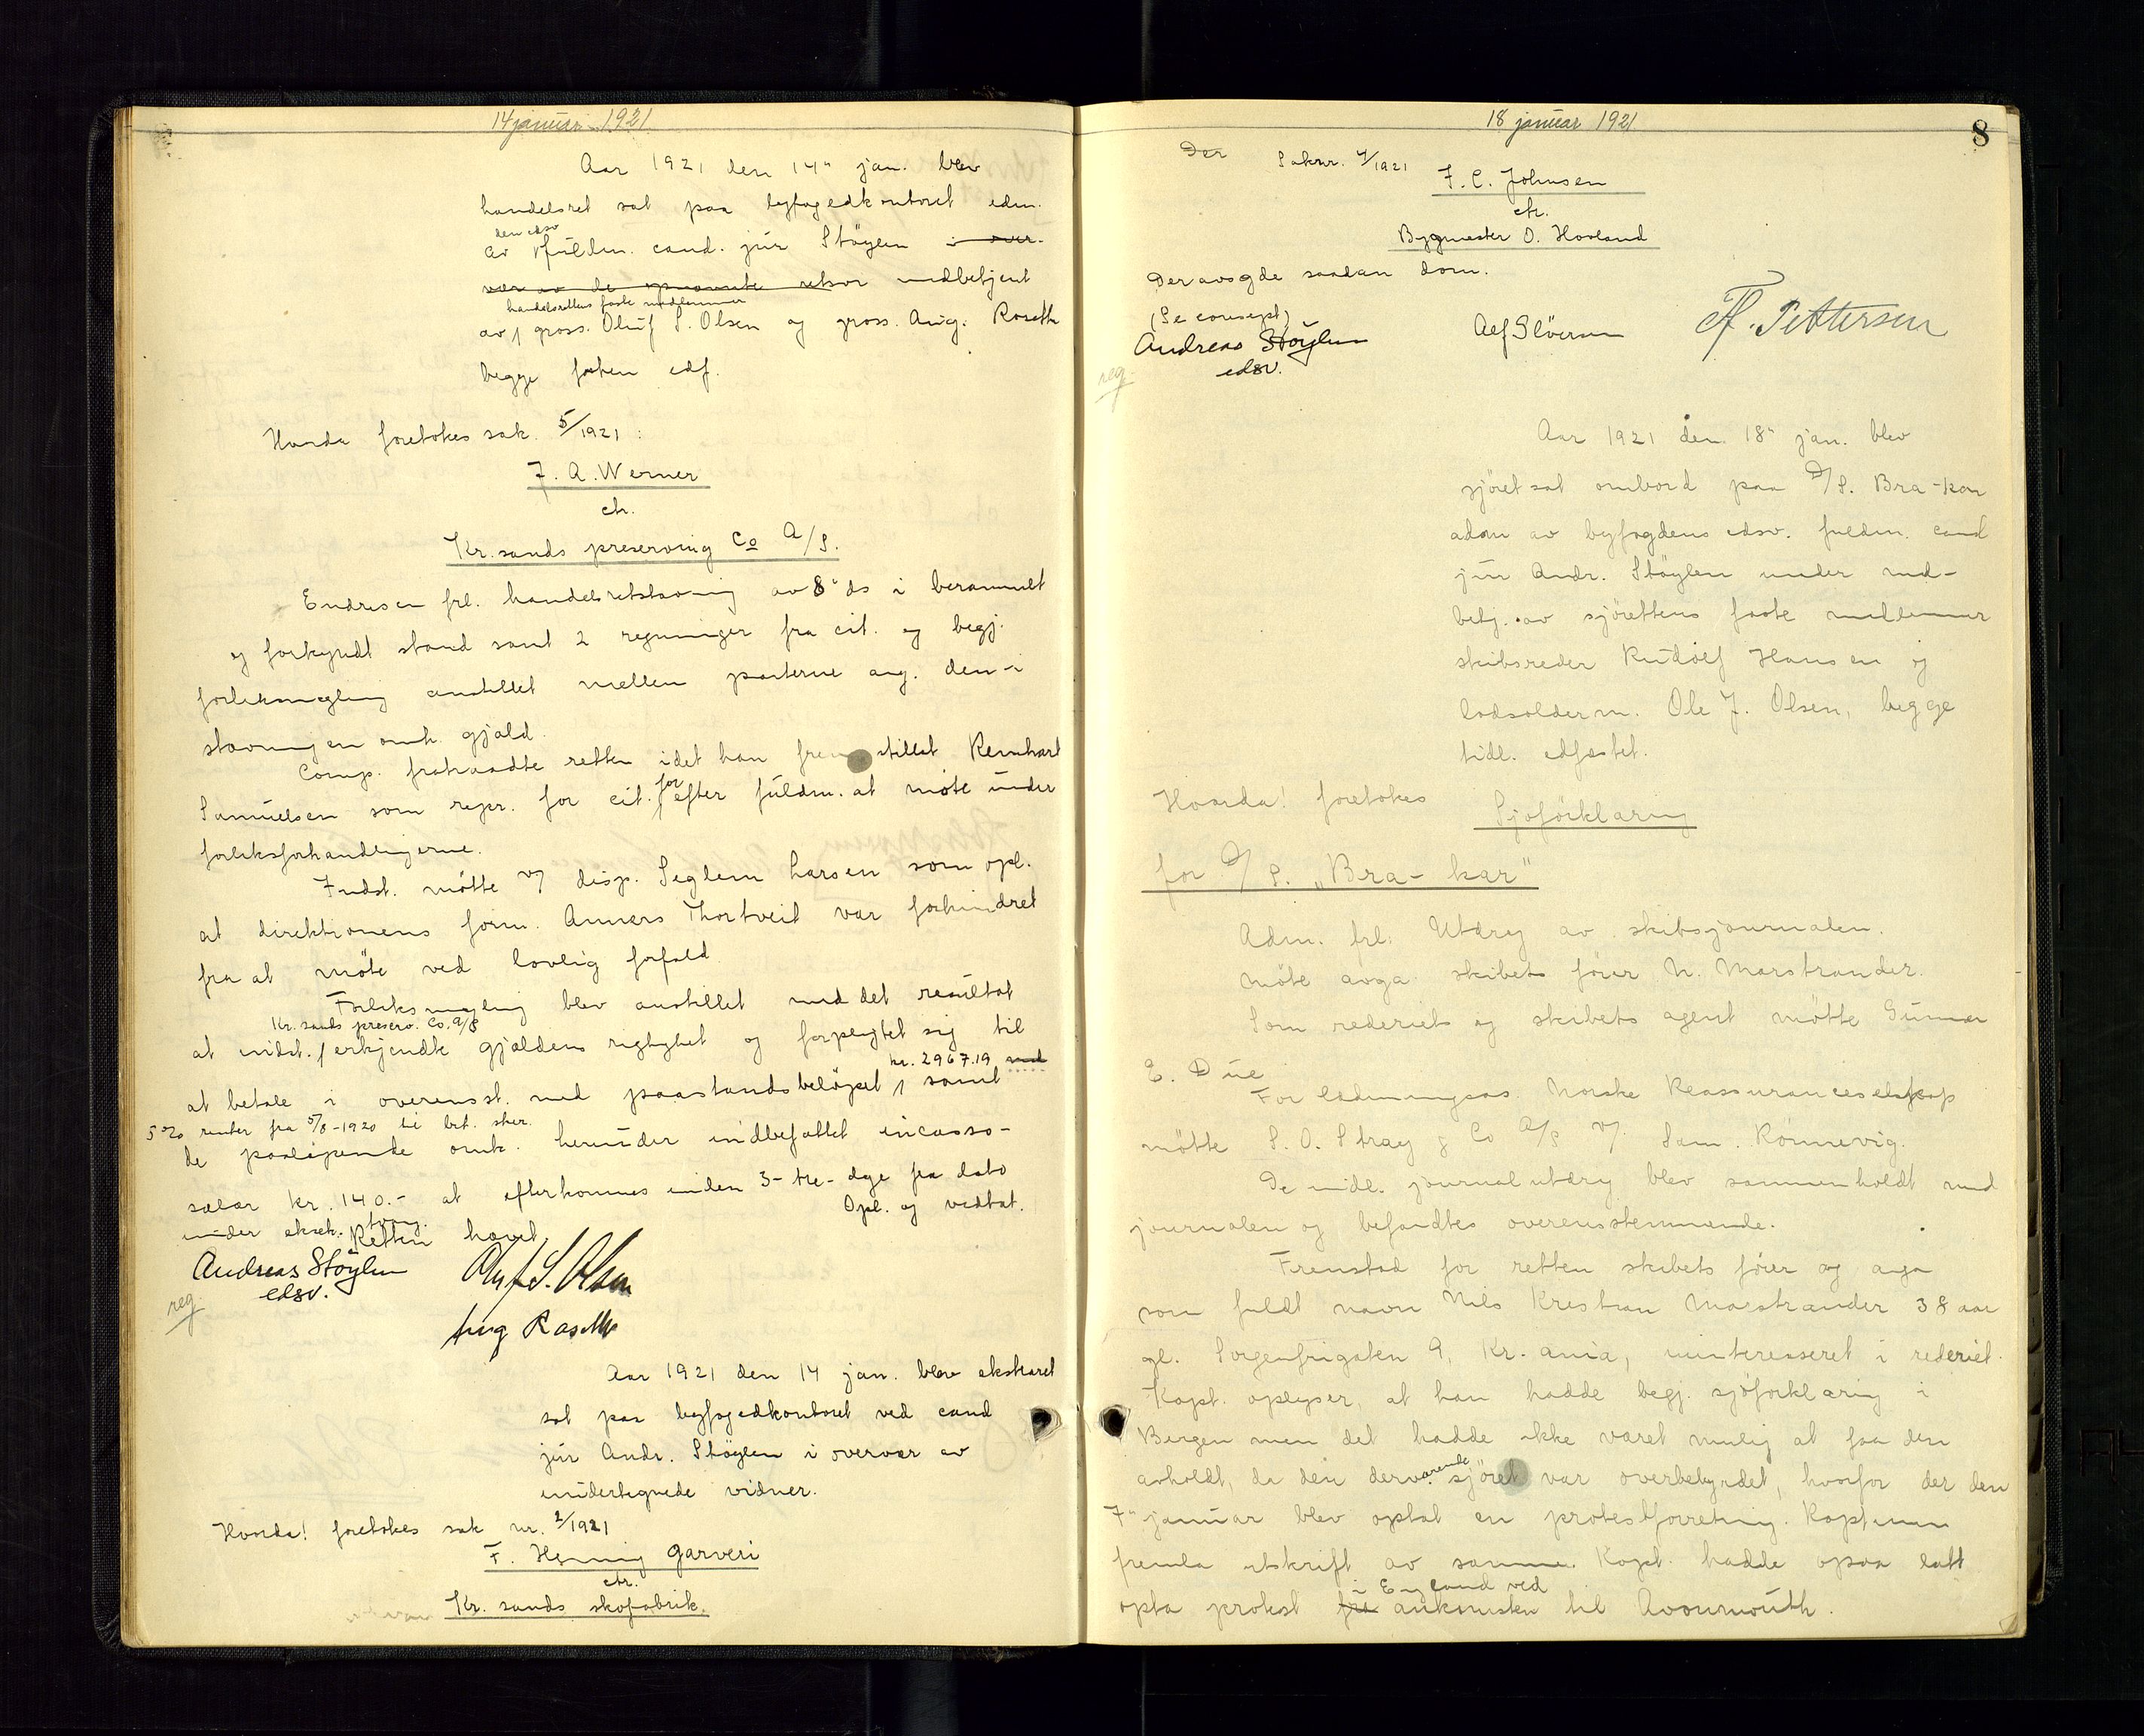 14 januar 1921
Aar 1921 den 14" jan. blev
handelsret sat paa byfogedkontoret adm.
den edsv
av fuldm. cand. jur Støylen i over-
vær av de opnævnte retsv medbetjent
handelsrettens faste medlemmer
av gross. Oluf S. Olsen og gross. Aug. Roseth
begge før edf.
Hvorda foretokes sak 5/1921 :
J. A. Werner
ctr.
Kr.sands preserving Co A/S.
Endresen frl. handelsretstævning av 8" ds i berammet
og forkyndt stand samt 2 regninger fra cit. og begj.
forliksmægling anstillet mellem parterne ang. den i
stævningen omh. gjæld.
Comp. fratraadte retten idet han fremstillet Reinhart
Samuelsen som repr. for cit. for efter fuldm. at møte under
forliksforhandlingerne.
Indst. møtte v/ disp. Seglem Larsen som opl.
at direktionens form. Anners Thortveit var forhindret
fra at møte ved lovlig forfald.
Forliksmægling blev anstillet med det resultat
Kr. sands preserv. Co. A/S
at indst. erkjendte gjældens rigtighet og forpligtet sig til
kr. 2967.19 med
at betale i overensst. med paastandsbeløpet samt
5% renter fra 5/8-1920 til bet. sker.
de paaløpende omk. herunder indbefattet incasso-
salær kr. 140.- at efterkommes inden 3-tre-dage fra dato
under eksek. tvang. Opl. og vedtat.
Retten hævet
Andreas Støylen Oluf S. Olsen
edsv.
reg
Aug Roseth
Aar 1921 den 14 jan. blev ekstraret
sat paa byfogedkontoret ved cand
jur Andr. Støylen i overvær av
undertegnede vidner.
Hvorda! foretokes sak nr. 2/1921
F. Hennig garveri
ctr.
Kr. sands skofabrik.
18 januar 1921
8
Der Saknr. 4/1921
F. C. Johnsen
ctr.
Bygmester O. Hovland
Der avsgde saadan dom.
(Se consept)
Andreas Støylen
edsv.
Alf Sløversen
Pettersen
reg
Aar 1921 den 18" jan. blev
sjøret sat ombord paa D/S. Bra-Kar
adm av byfogdens edsv. fuldm. cand
jur Andr. Støylen under med-
betj. av sjørettens faste medlemmer
skibsreder Rudolf Hansen og
lodsolderm. Ole J. Olsen, begge
tidl. edfæstet.
Hvorda! foretokes Sjøforklaring
for D/S. „Bra-kar"
Adm. frl: Utdrag av skibsjournalen.
Møte avga skibets fører N. Marstrander.
Som rederiets og skibets agent møtte Gunnar
E. Due
For ladningsas. Norske Reassuranceselskap
møtte S. O. Stray & Co A/S v/ Sam. Rønnevig.
De indl. journalutdrag blev sammenholdt med
journalen og befandtes overensstemmende.
Fremstod for retten skibets fører og avga
som fuldt navn Nils Krestian Marstrander 38 aar
gl. Sorgenfrigaten 9, Kr.ania, uinteresseret i rederiet.
Kapt. oplyser, at han hadde begj. sjøforklaring i
Bergen men det hadde ikke været mulig at faa den
avholdt, da den derværende sjøret var overbebyrdet, hvorfor der den
7" januar blev optat en protestforretning. Kapteinen
fremla utskrift av samme. Kapt. hadde ogsaa latt
i England ved
opta protest fra ankomsten til Avonmouth.